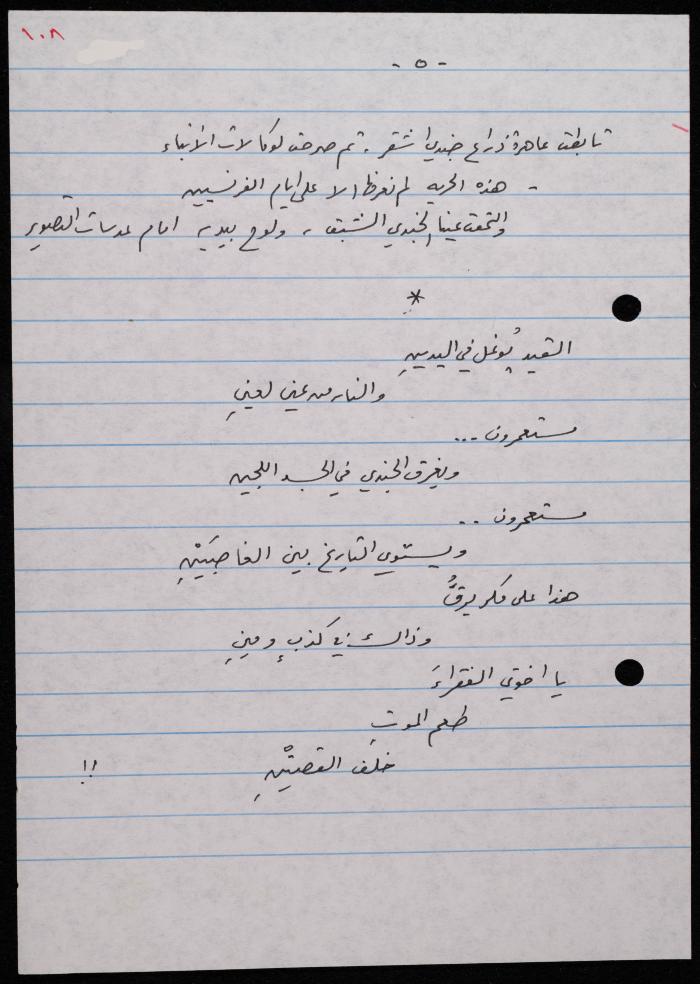 ١٠٨
- ٥ -
تأبطت عاهرة ذراع جندي اشقر . ثم صرخت لوكالات الأنباء
- هذه الحريه لم نعرفها الا على ايام الفرنسيين
والتمعت عينا الجندي الشبق ، ولوح بيديه امام عدسات التصوير
*
القيد يُوغل في اليدينِ
والنار من عينٍ لعينِ
مستعمرون ...
ويغرق الجندي في الجسد اللجين
مستعمرون ..
ويستوي التاريخ بين الغاصبَيْنِ
هذا على فكر يرقُّ
وذاك في كذبٍ ومينِ
يا اخوتي الفقراءَ
طعم الموتِ
خلف القصتيْنِ !!